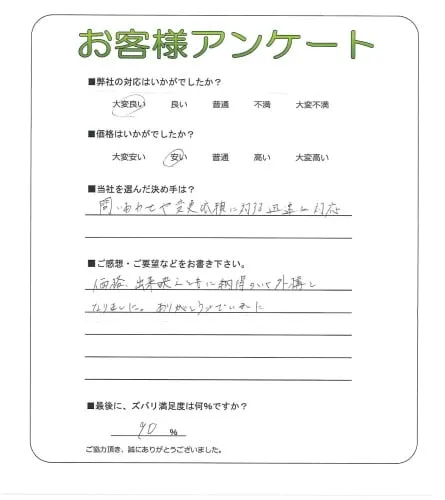 お客様アンケート
■弊社の対応はいかがでしたか？
大変良い 良い 普通 不満 大変不満
■価格はいかがでしたか？
大変安い 安い 普通 高い 大変高い
■当社を選んだ決め手は？
問い合わせや変更依頼に対する迅速な対応
■ご感想・ご要望などをお書き下さい。
価格、出来映えともに納得のいく外構と
なりました。ありがとうございました
■最後に、ズバリ満足度は何％ですか？
90 %
ご協力頂き、誠にありがとうございました。